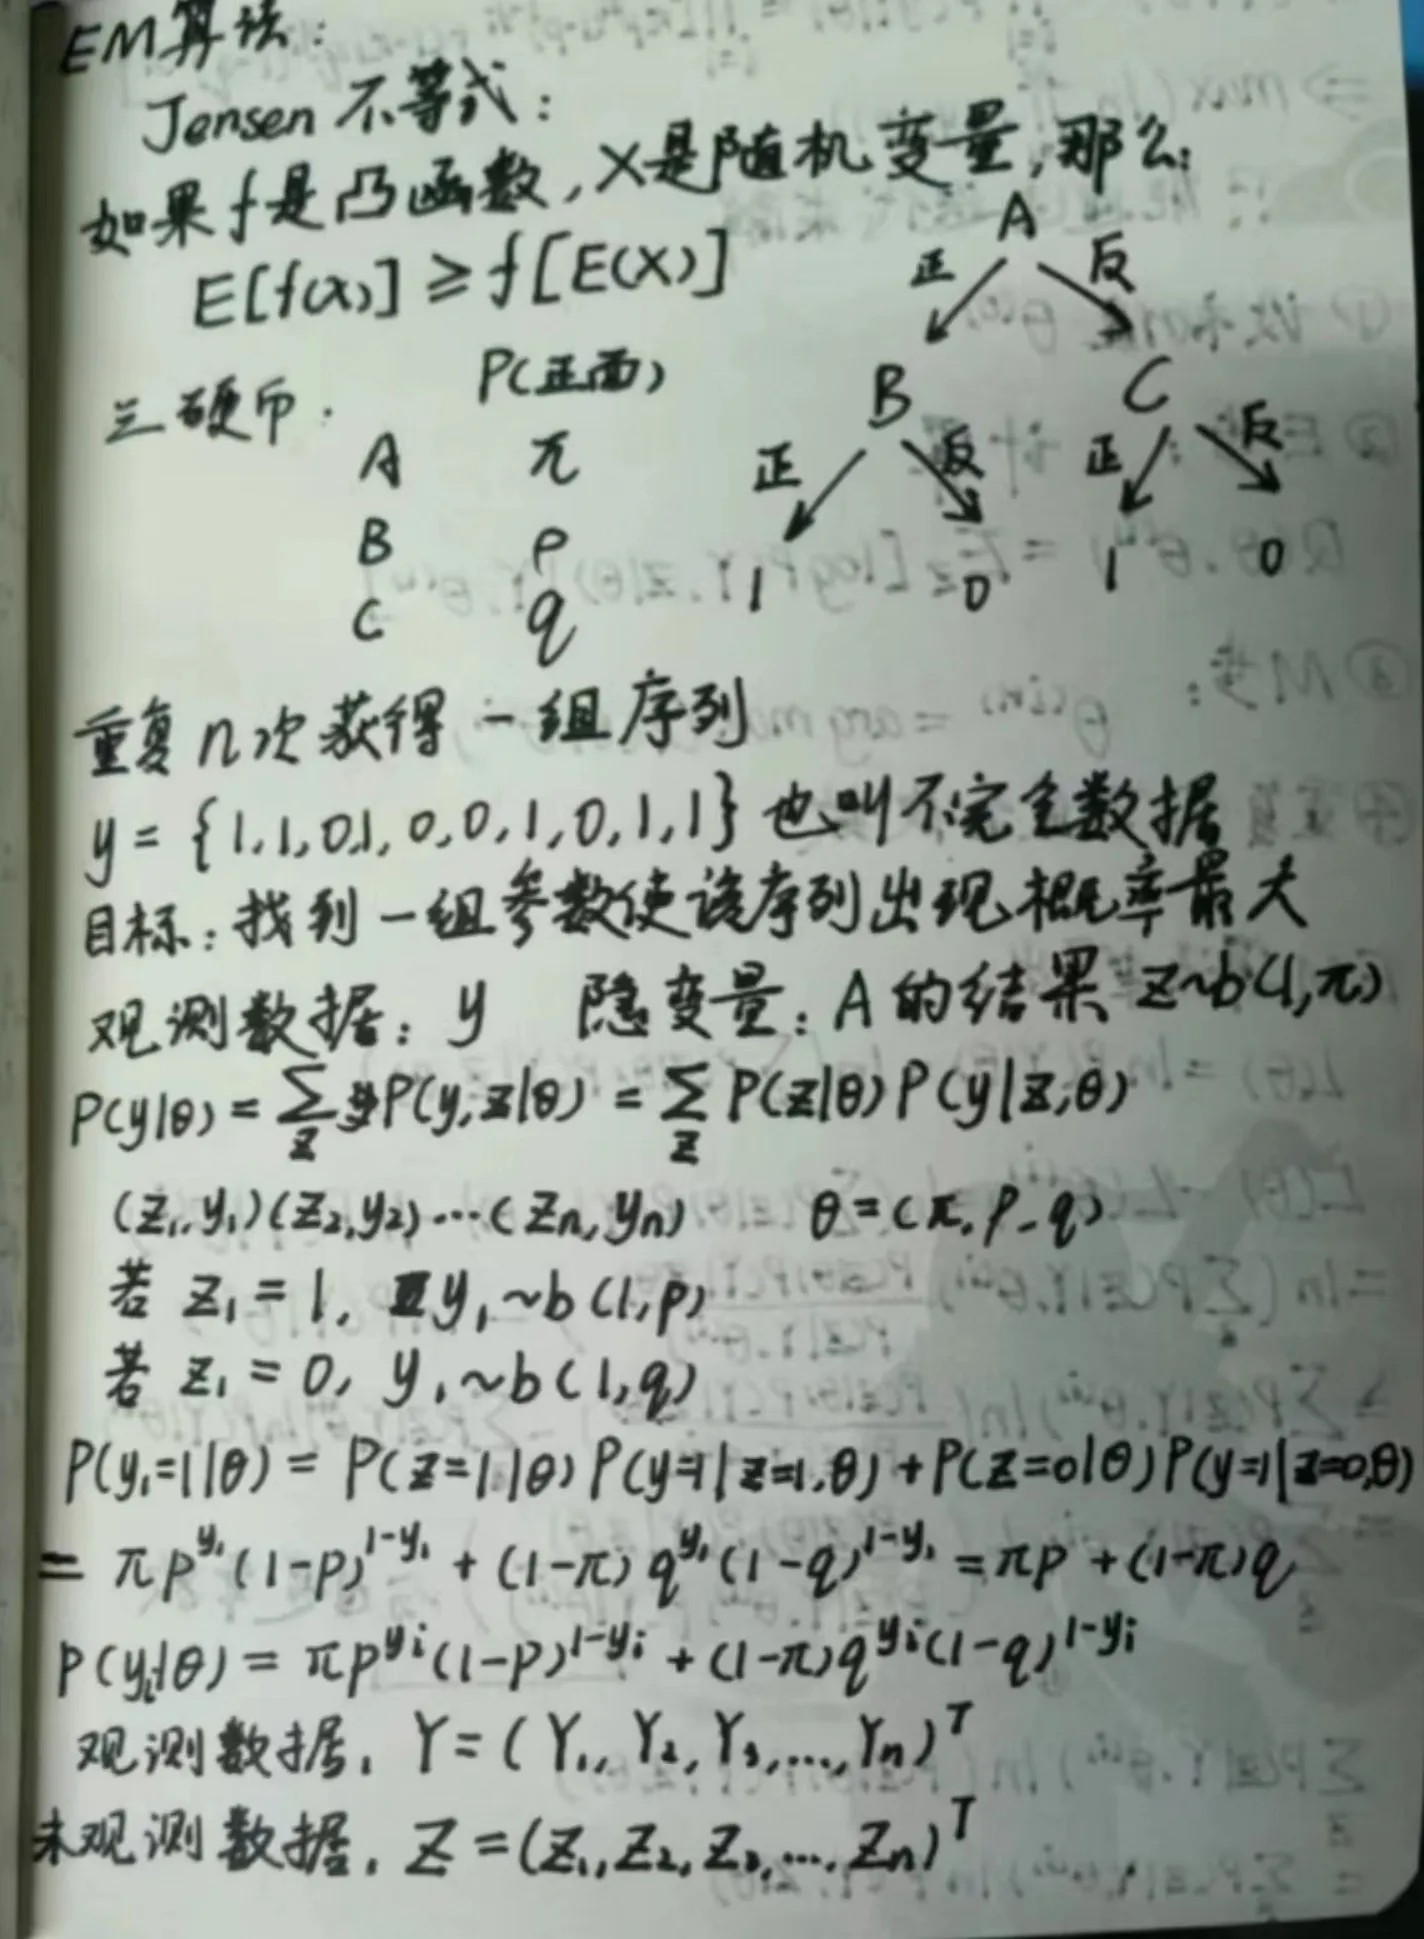 EM算法:
Jensen 不等式:
如果f是凸函数,X是随机变量,那么:
E[f(x)] ≥ f[E(X)]
A
正 反
三硬币: P(正面)
B C
A π
正 反 正 反
B p
1 0 1 0
C q
重复n次获得一组序列
y = {1,1,0,1,0,0,1,0,1,1} 也叫不完全数据
目标:找到一组参数使该序列出现概率最大
观测数据: y 隐变量: A的结果 z~b(1,π)
P(y|θ) = ∑_z P(y,z|θ) = ∑_z P(z|θ)P(y|z,θ)
(z₁,y₁)(z₂,y₂)…(zₙ,yₙ) θ=(π,p,q)
若 z₁=1, y₁~b(1,p)
若 z₁=0, y₁~b(1,q)
P(y₁=1|θ) = P(z=1|θ)P(y=1|z=1,θ)+P(z=0|θ)P(y=1|z=0,θ)
= πp^{y₁}(1-p)^{1-y₁} + (1-π)q^{y₁}(1-q)^{1-y₁} = πp+(1-π)q
P(yᵢ|θ) = πp^{yᵢ}(1-p)^{1-yᵢ} + (1-π)q^{yᵢ}(1-q)^{1-yᵢ}
观测数据, Y=(Y₁,Y₂,Y₃,…,Yₙ)^T
未观测数据, Z=(Z₁,Z₂,Z₃,…,Zₙ)^T